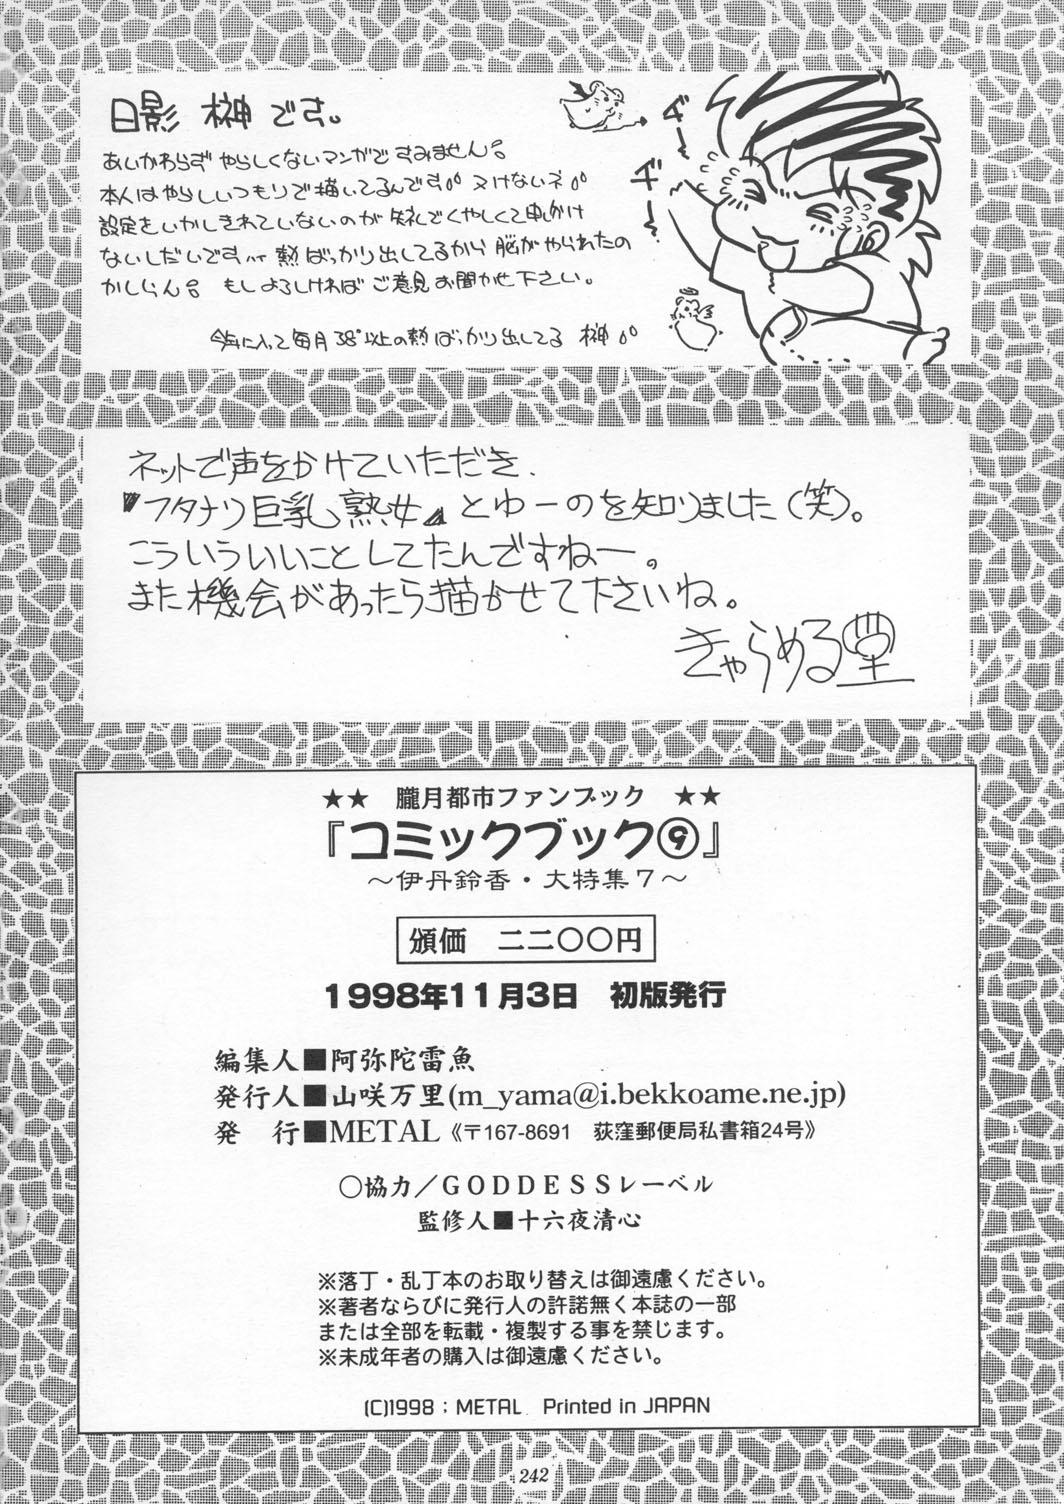 日影 榊 です。
あいかわらず やらしくないマンガで すみません。
本人は やらしいつもりで描いてるんです ヌけないネ
設定をいかしきれていないのが 実にくやしくて申しわけ
ないしだいです 熱ばっかり出してるから 脳がやられたの
かしらん。 もしよろしければ ご意見 お聞かせ下さい。
今年に入って毎月38°以上の熱ばっかり出してる 榊
ギ〜
ギ〜
ネットで声をかけていただき、
『フタナリ巨乳熟女』とゆーのを知りました(笑)。
こういういいことしてたんですねー。
また機会があったら描かせて下さいね。
きゃらめる堂
★★ 朧月都市ファンブック ★★
『コミックブック⑨』
〜伊丹鈴香・大特集7〜
頒価 二二〇〇円
1998年11月3日 初版発行
編集人■阿弥陀雷魚
発行人■山咲万里(m_yama@i.bekkoame.ne.jp)
発 行■METAL《〒167-8691 荻窪郵便局私書箱24号》
○協力/GODDESSレーベル
監修人■十六夜清心
※落丁・乱丁本のお取り替えは御遠慮ください。
※著者ならびに発行人の許諾無く本誌の一部
または全部を転載・複製する事を禁じます。
※未成年者の購入は御遠慮ください。
(C)1998:METAL Printed in JAPAN
242